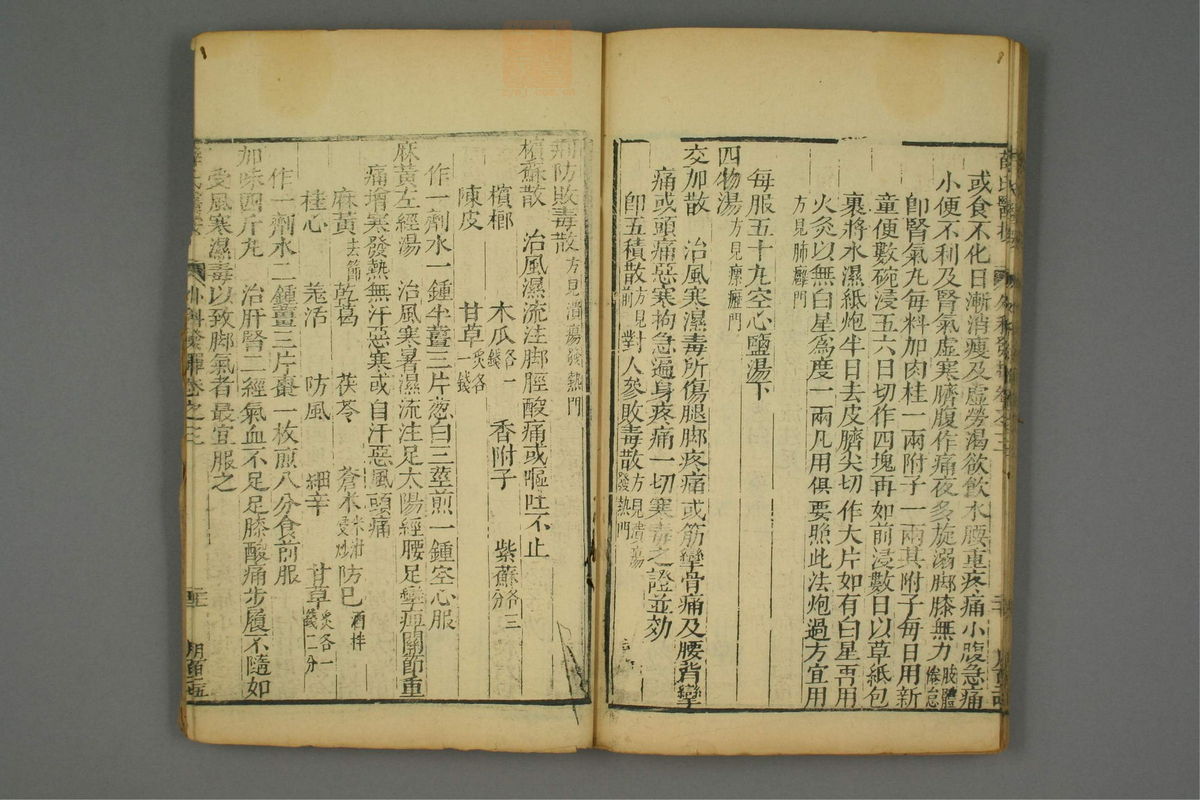 或食不化日漸消瘦及虛勞渴欲飲水腰重疼痛小腹急痛
小便不利及腎氣虛寒臍腹作痛夜多旋溺腳膝無力肢體倦怠
卽腎氣丸每料加肉桂一兩附子一兩其附子每日用新
童便數碗浸五六日切作四塊再如前浸數日以草紙包
裹將水濕紙炮半日去皮臍尖切作大片如有白星再用
火炙以無白星爲度一兩凡用俱要照此法炮過方宜用
方見肺癰門
每服五十丸空心鹽湯下
四物湯方見瘰癧門
交加散 治風寒濕毒所傷腿脚疼痛或筋攣骨痛及腰背攣
痛或頭痛惡寒拘急遍身疼痛一切寒毒之證並効
卽五積散方見前對人參敗毒散方見潰瘍發熱門
荊防敗毒散方見潰瘍發熱門
檳蘇散 治風濕流注脚脛酸痛或嘔吐不止
檳榔 木瓜各一錢 香附子 紫蘇各三分
陳皮 甘草炙各一錢
作一劑水一鍾半薑三片葱白三莖煎一鍾空心服
麻黃左經湯 治風寒暑濕流注足太陽經腰足攣痹關節重
痛增寒發熱無汗惡寒或自汗惡風頭痛
麻黃去節 乾葛 茯苓 蒼朮米泔浸炒 防己酒拌
桂心 羌活 防風 細辛 甘草炙各一錢二分
作一劑水二鍾薑三片棗一枚煎八分食前服
加味四斤丸 治肝腎二經氣血不足足膝酸痛步履不隨如
受風寒濕毒以致脚氣者最宜服之